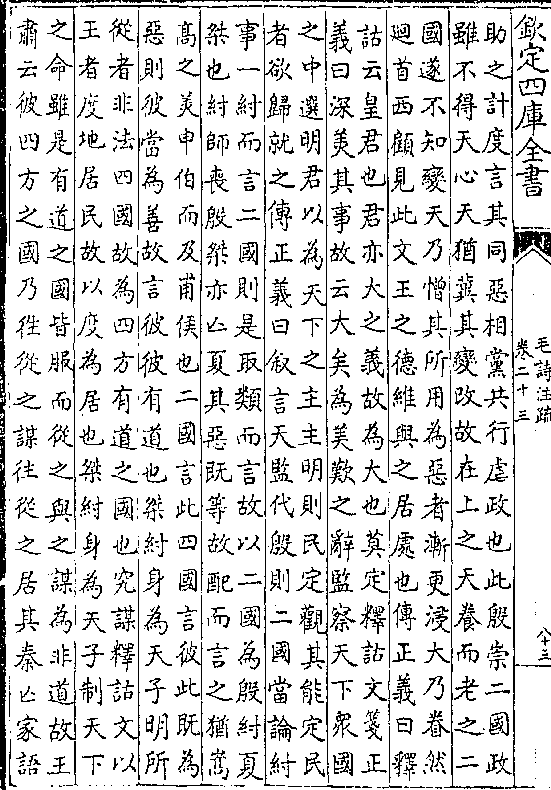 欽定四庫全書
毛詩注疏
卷二十三
八十三
助之計度言其同惡相黨共行虐政也此殷崇二國政
雖不得天心天猶冀其變改故在上之天養而老之二
國遂不知變天乃憎其所用為惡者漸更浸大乃眷然
迴首西顧見此文王之德維與之居處也傳正義曰釋
詁云皇君也君亦大之義故為大也莫定釋詁文箋正
義曰深美其事故云大矣為美歎之辭監察天下衆國
之中選明君以為天下之主主明則民定觀其能定民
者欲歸就之傳正義曰叙言天監代殷則二國當論紂
事一紂而言二國則是取類而言故以二國為殷紂夏
桀也紂師喪殷桀亦亾夏其惡既等故配而言之猶嵩
髙之美申伯而及甫侯也二國言此四國言彼此既為
惡則彼當為善故言彼彼有道也桀紂身為天子明所
從者非法四國故為四方有道之國也究謀釋詁文以
王者度地居民故以度為居也桀紂身為天子制天下
之命雖是有道之國皆服而從之與之謀為非道故王
肅云彼四方之國乃徃從之謀往從之居其秦亾家語